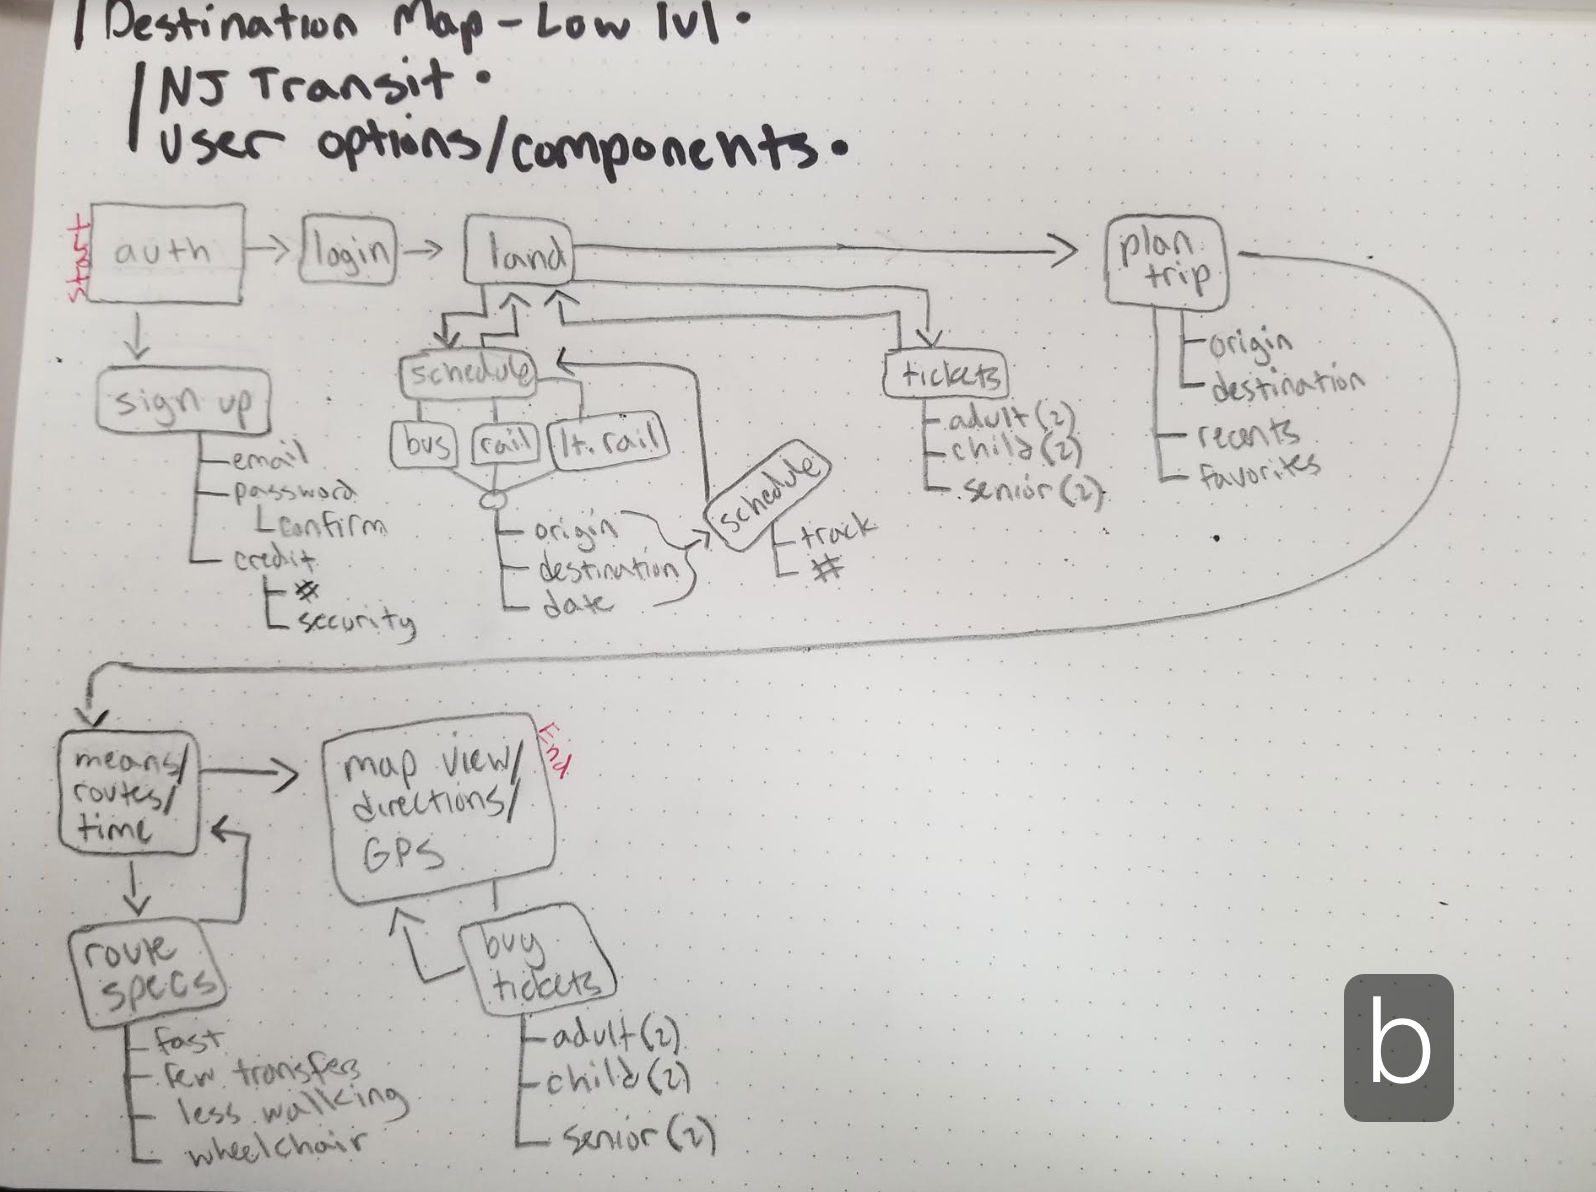 Destination Map - Low lvl.
NJ Transit.
User options/components.
Start
auth
login
land
plan
trip
origin
destination
recents
favorites
sign up
email
password
confirm
credit
#
security
schedule
bus
rail
lt. rail
origin
destination
date
schedule
track
#
tickets
adult (2)
child (2)
senior (2)
means/
routes/
time
map view/
directions/
GPS
End
route
specs
fast
few transfers
less walking
wheelchair
buy
tickets
adult (2)
child (2)
senior (2)
b